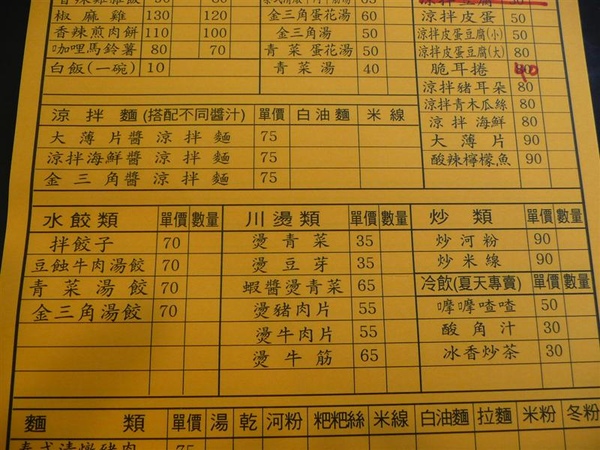 椒麻雞 130 120
香辣煎肉餅 110 100
咖哩馬鈴薯 80 70
白飯(一碗) 10
金三角蛋花湯 60
金三角湯 50
青菜蛋花湯 50
青菜湯 40
涼拌皮蛋 50
涼拌皮蛋豆腐(小) 50
涼拌皮蛋豆腐(大) 80
脆耳捲 40
涼拌豬耳朵 80
涼拌青木瓜絲 80
涼拌海鮮 80
大薄片 90
酸辣檸檬魚 90
涼拌麵(搭配不同醬汁) 單價 白油麵 米線
大薄片醬涼拌麵 75
涼拌海鮮醬涼拌麵 75
金三角醬涼拌麵 75
水餃類 單價 數量
拌餃子 70
豆蝕牛肉湯餃 70
青菜湯餃 70
金三角湯餃 70
川燙類 單價 數量
燙青菜 35
燙豆芽 35
蝦醬燙青菜 65
燙豬肉片 55
燙牛肉片 55
燙牛筋 65
炒類 單價 數量
炒河粉 90
炒米線 90
冷飲(夏天專賣) 單價 數量
嚤嚤喳喳 50
酸角汁 30
冰香炒茶 30
麵類 單價 湯 乾 河粉 粑粑絲 米線 白油麵 拉麵 米粉 冬粉
泰式清燉豬肉 75